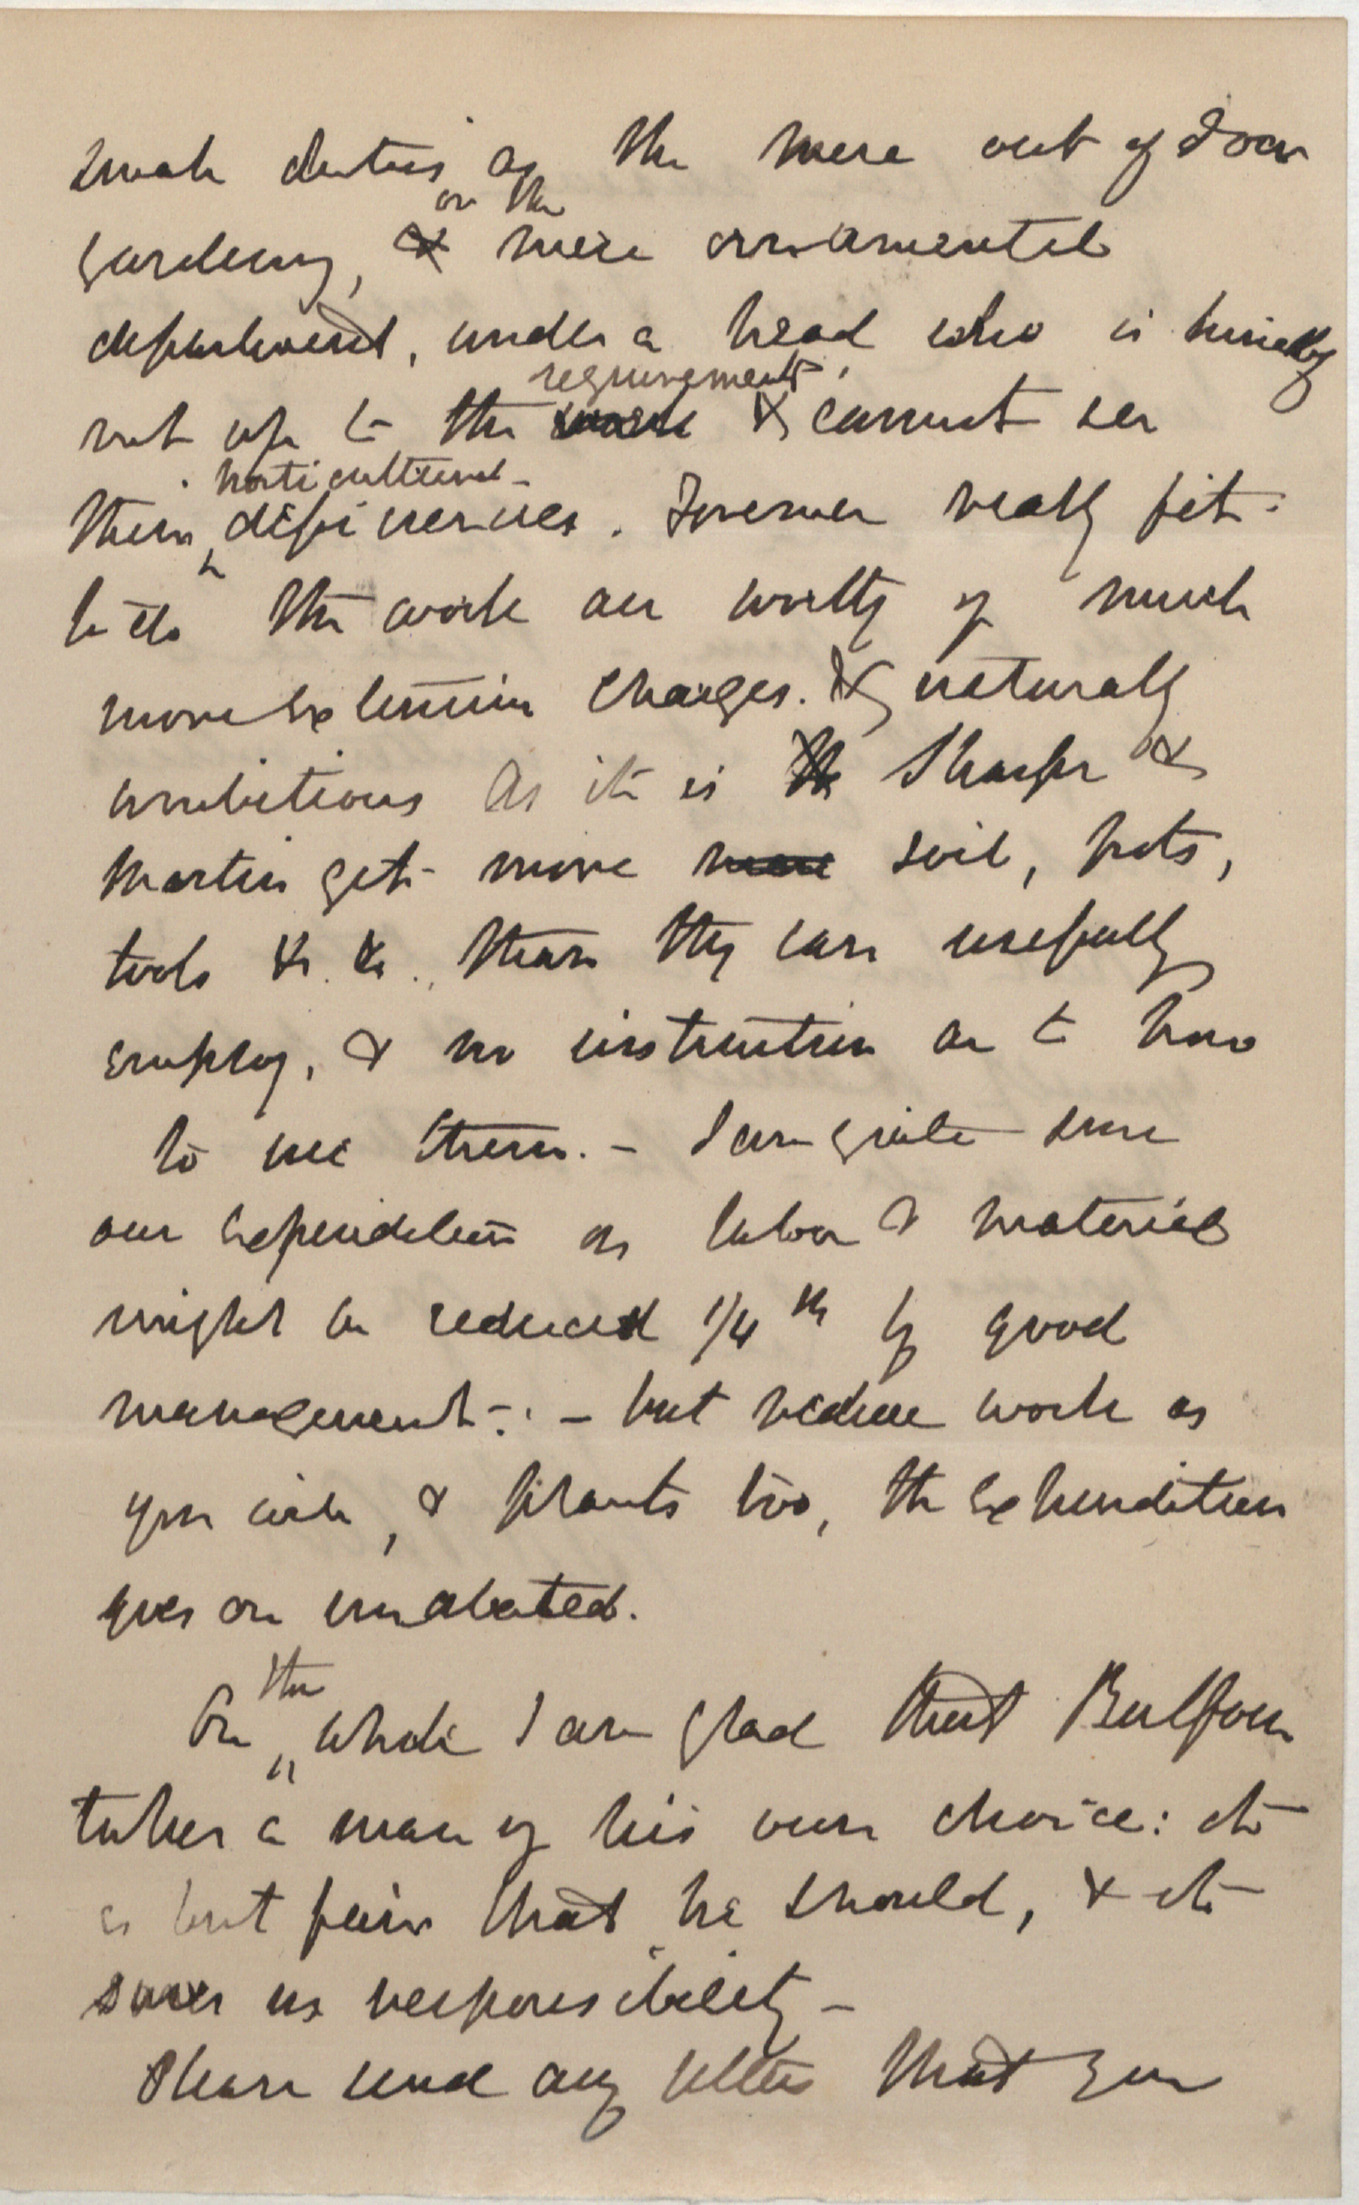 such duties as the mere out of door
or the
gardening, & mere ornamental
department, under a head who is
requirements
not up to the work & cannot see
horticultural
their deficiencies. Foremen really fit
to do the work are worthy of much
more extensive charges. & naturally
ambitious As it is th Sharpe &
Martin get more more soil, pots,
tools &c. &c., than they can usefully
employ, & no instruction as to how
to use them. – I am quite sure
our expenditure on labor & materials
might be reduced 1/4th by good
management: – but reduce work as
you will, & plants too, the expenditure
goes on unabated.
the
On whole I am glad that Balfour
takes a man of his own choice: it
is but fair that he should, & it
saves us responsibility –
Please send any letter that you